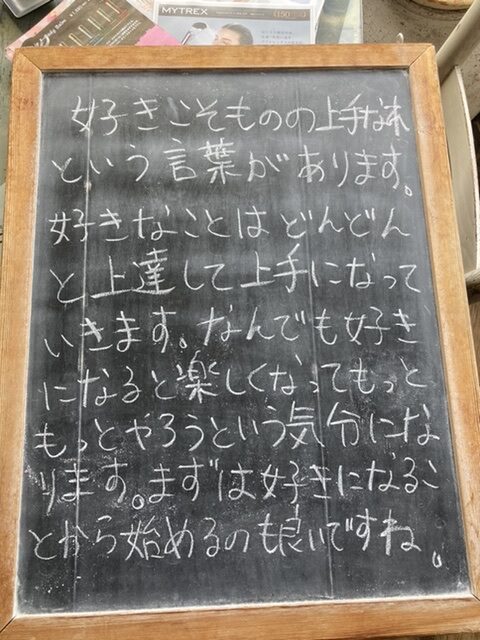 MYTREX
150
好きこそものの上手なれ
という言葉があります。
好きなことはどんどん
と上達して上手になって
いきます。なんでも好き
になると楽しくなってもっと
もっとやろうという気分にな
ります。まずは好きになるこ
とから始めるのも良いですね。